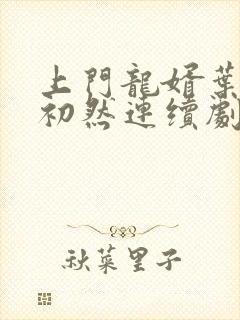 上門龍婿葉
初然連續劇
秋菜里子